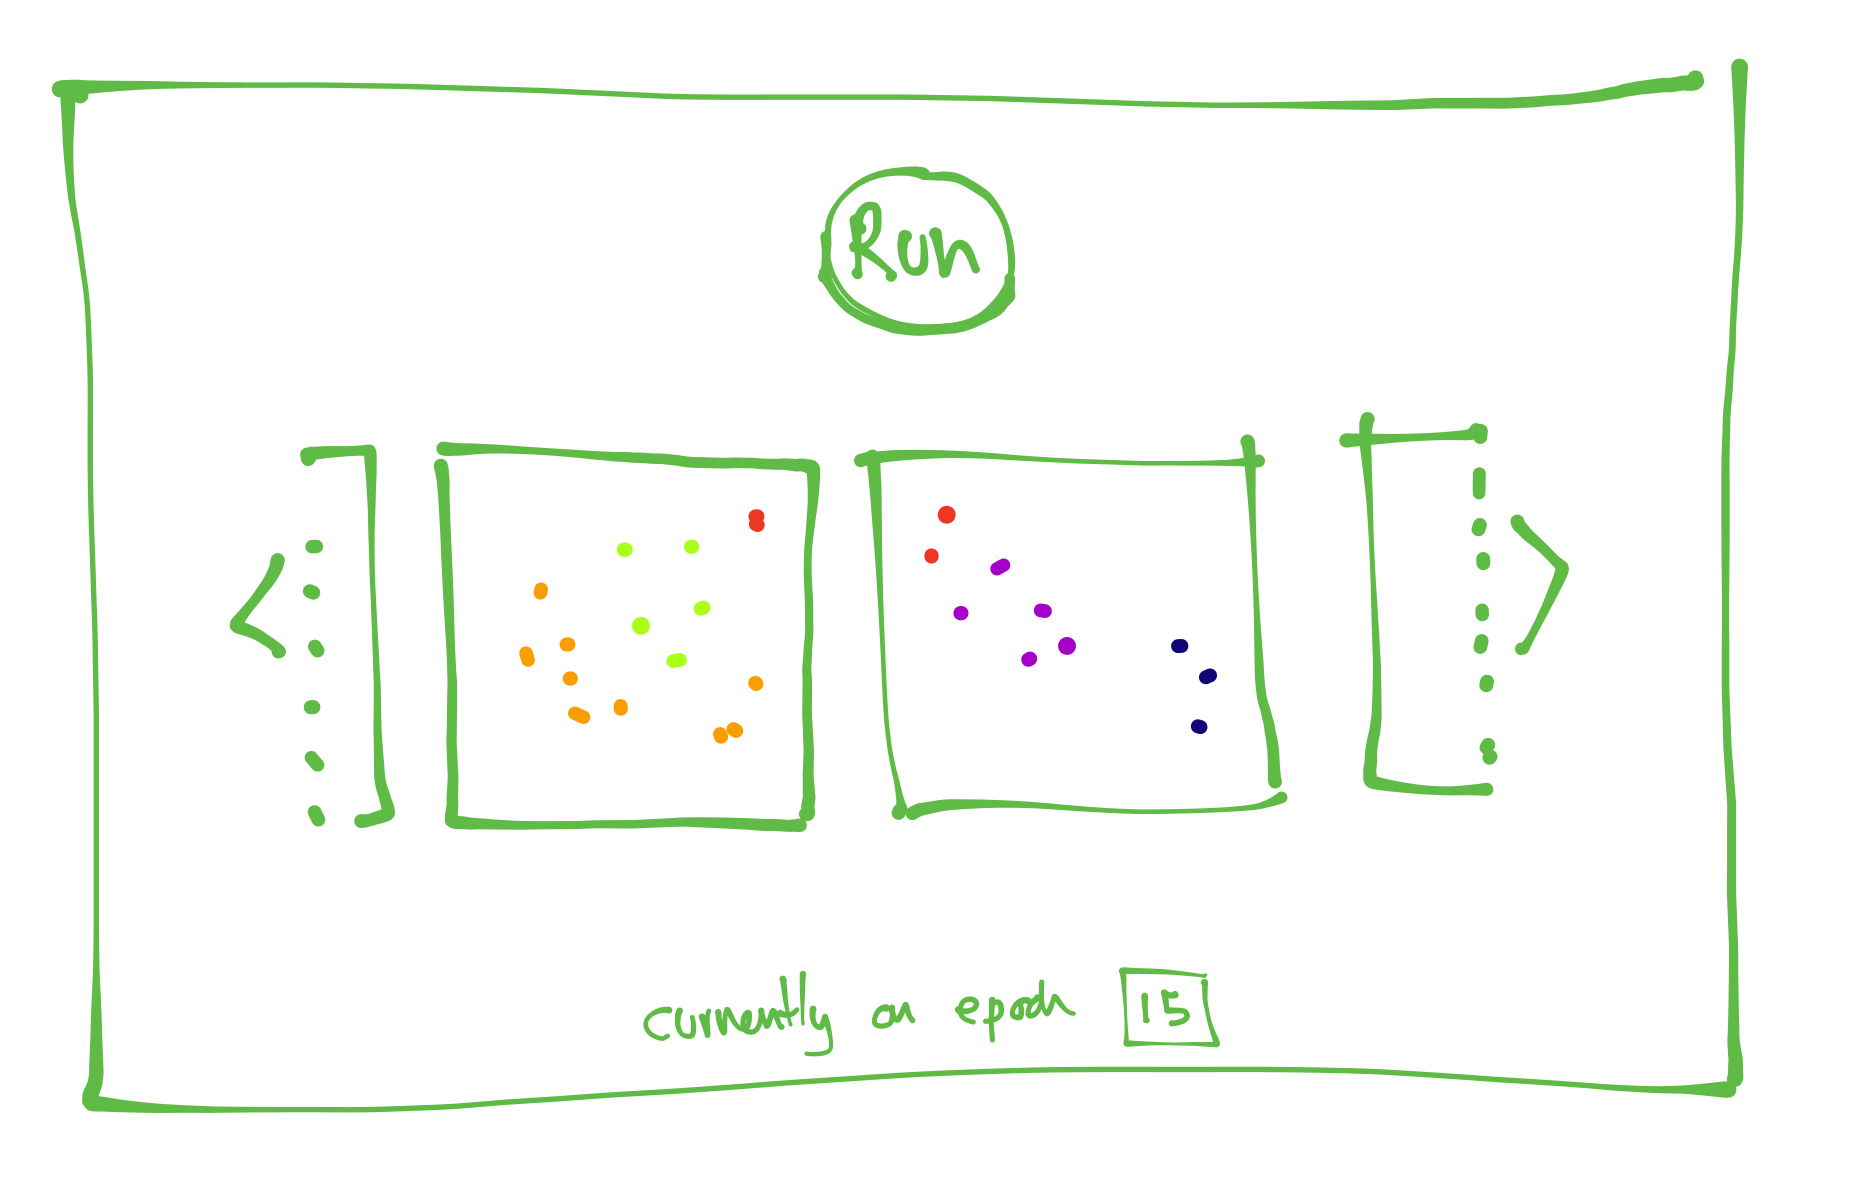 Run
currently on epoch 15